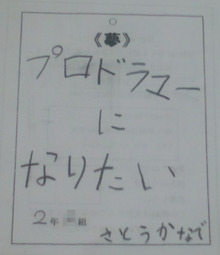 《夢》
プロドラマー
に
なりたい
2年 組
さとうかなで